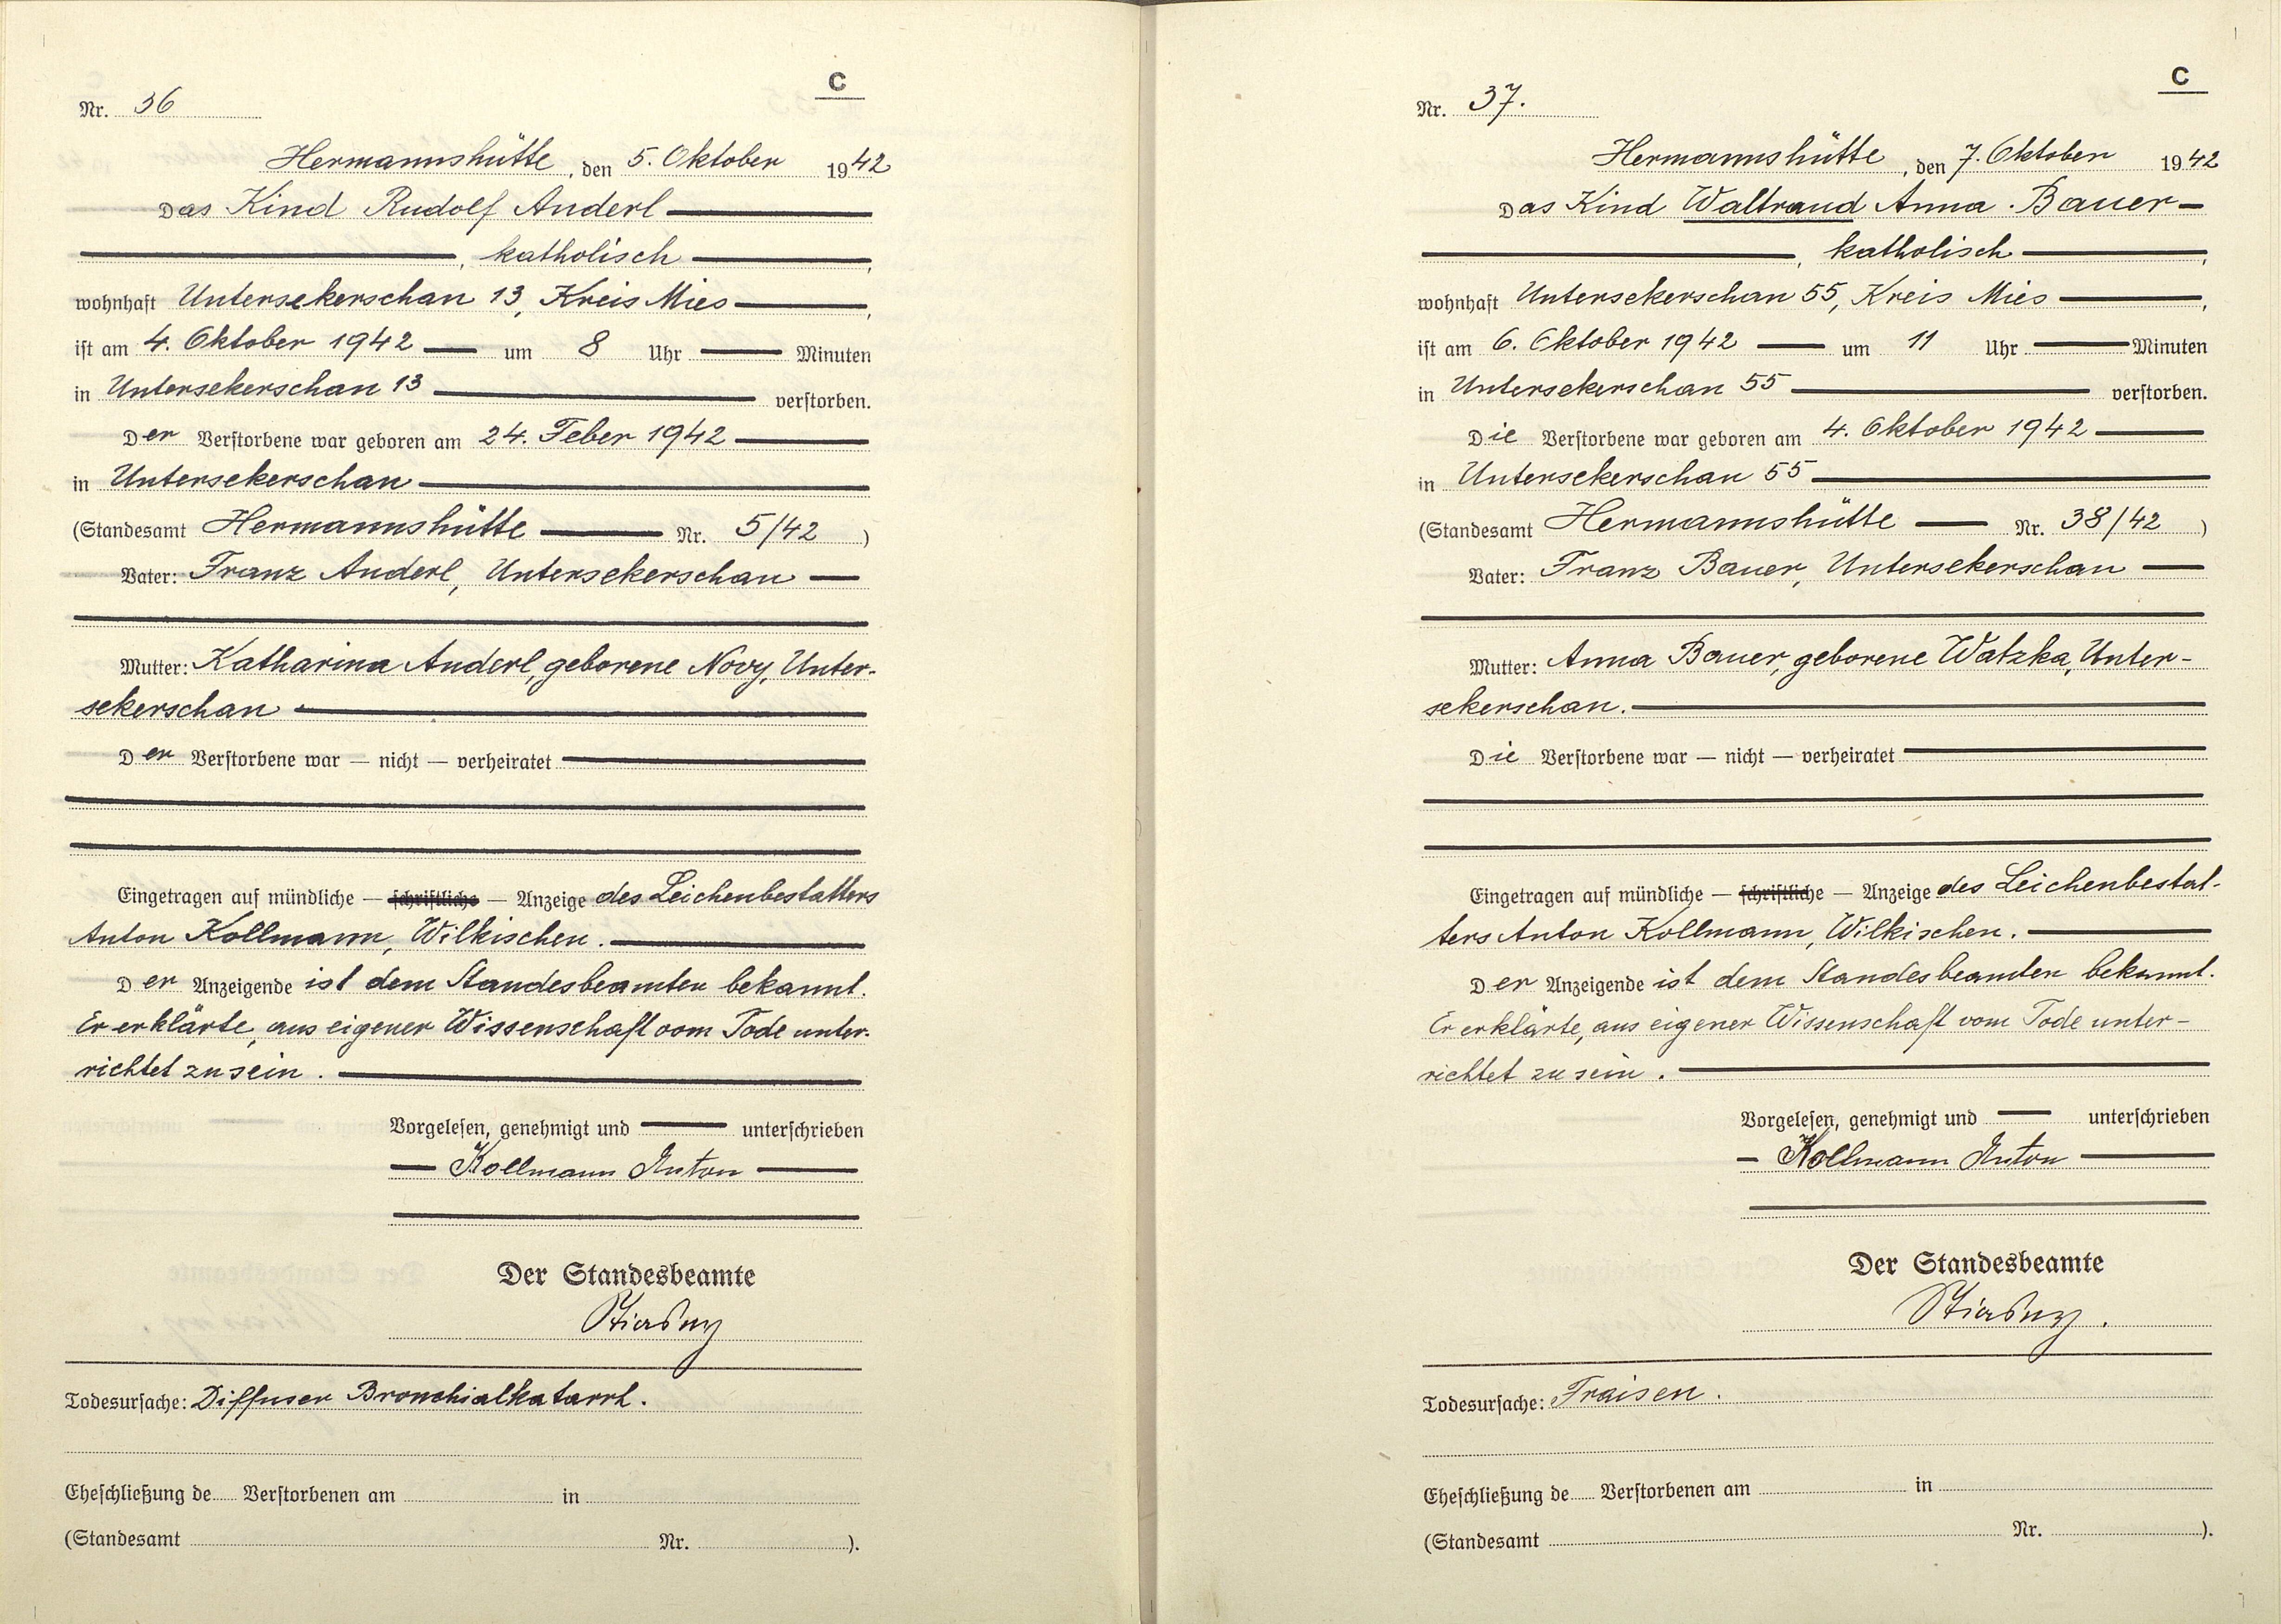 C
Nr. 36
Hermannshütte, den 5. Oktober 1942
Das Kind Rudolf Anderl
, katholisch,
wohnhaft Untersekerschan 13, Kreis Mies,
ist am 4. Oktober 1942 um 8 Uhr Minuten
in Untersekerschan 13 verstorben.
Der Verstorbene war geboren am 24. Feber 1942
in Untersekerschan
(Standesamt Hermannshütte Nr. 5/42)
Vater: Franz Anderl, Untersekerschan
Mutter: Katharina Anderl, geborene Novy, Unter-
sekerschan
Der Verstorbene war — nicht — verheiratet
Eingetragen auf mündliche — schriftliche — Anzeige des Leichenbestatters
Anton Kollmann, Wilkischen.
Der Anzeigende ist dem Standesbeamten bekannt.
Er erklärte, aus eigener Wissenschaft vom Tode unter-
richtet zu sein.
Vorgelesen, genehmigt und unterschrieben
Kollmann Anton
Der Standesbeamte
Todesursache: Diffuser Bronchialkatarrh.
Eheschließung de Verstorbenen am in
(Standesamt Nr. ).
C
Nr. 37.
Hermannshütte, den 7. Oktober 1942
Das Kind Waltraud Anna Bauer
, katholisch,
wohnhaft Untersekerschan 55, Kreis Mies,
ist am 6. Oktober 1942 um 11 Uhr Minuten
in Untersekerschan 55 verstorben.
Die Verstorbene war geboren am 4. Oktober 1942
in Untersekerschan 55
(Standesamt Hermannshütte Nr. 38/42)
Vater: Franz Bauer, Untersekerschan
Mutter: Anna Bauer, geborene Watzka, Unter-
sekerschan.
Die Verstorbene war — nicht — verheiratet
Eingetragen auf mündliche — schriftliche — Anzeige des Leichenbestat-
ters Anton Kollmann, Wilkischen.
Der Anzeigende ist dem Standesbeamten bekannt.
Er erklärte, aus eigener Wissenschaft vom Tode unter-
richtet zu sein.
Vorgelesen, genehmigt und unterschrieben
Kollmann Anton
Der Standesbeamte
Todesursache: Fraisen.
Eheschließung de Verstorbenen am in
(Standesamt Nr. ).